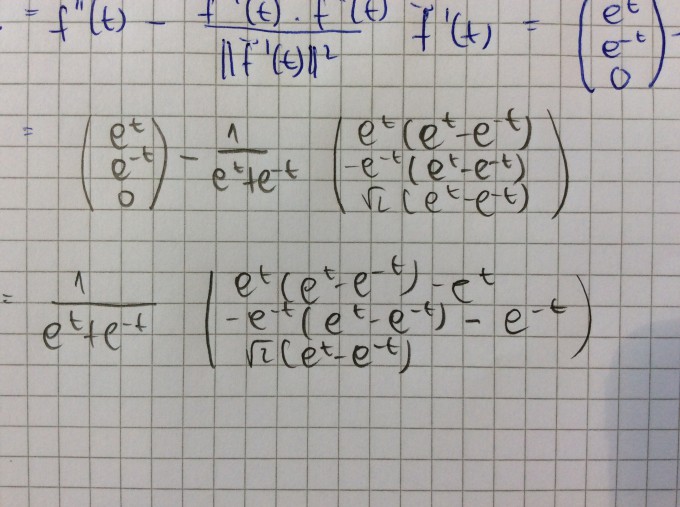 = f''(t) - f''(t) · f'(t) / ||f'(t)||² f'(t) = (e^t e^-t 0) -
= (e^t e^-t 0) - 1 / e^t + e^-t (e^t (e^t - e^-t) -e^-t (e^t - e^-t) √2 (e^t - e^-t))
= 1 / e^t + e^-t (e^t (e^t - e^-t) - e^t -e^-t (e^t - e^-t) - e^-t √2 (e^t - e^-t))